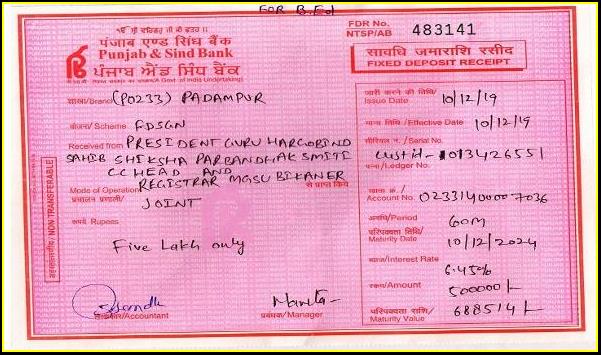 FOR B.Ed
ੴ ਸ੍ਰੀ ਵਾਹਿਗੁਰੂ ਜੀ ਕੀ ਫਤਹਿ ॥
पंजाब एण्ड सिंध बैंक
Punjab & Sind Bank
ਪੰਜਾਬ ਐਂਡ ਸਿੰਧ ਬੈਂਕ
(A Govt. of India Undertaking)
FDR No.
NTSP/AB 483141
सावधि जमाराशि रसीद
FIXED DEPOSIT RECEIPT
शाखा/Branch (P0233) PADAMPUR
योजना/Scheme FDSGN
Received from PRESIDENT GURU HARGOBIND
SAHIB SHIKSHA PARBANDHAK SMITI
CC HEAD AND
REGISTRAR MGSU BIKANER
से प्राप्त किये
Mode of Operation
प्रचालन प्रणाली/ JOINT
रूपये Rupees
Five Lakh only
अहस्तांतरणीय/NON TRANSFERABLE
लेखाकार/Accountant
प्रबंधक/Manager
जारी करने की तिथि/
Issue Date 10/12/19
मान्य तिथि/Effective Date 10/12/19
सीरियल न./Serial No.
Custid - 1013426551
पन्ना/Ledger No.
खाता क्र./
Account No. 02331400007036
अवधि/Period 60M
परिपक्वता तिथि/
Maturity Date 10/12/2024
ब्याज/Interest Rate
6.45%
रकम/Amount 500000/-
परिपक्वता राशि/
Maturity Value 688514/-